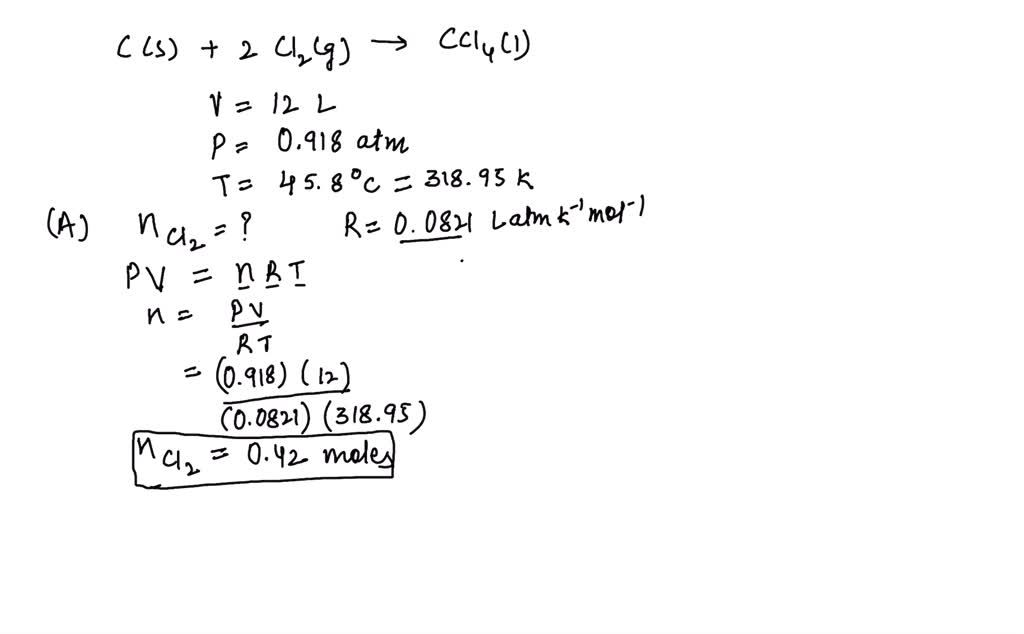 C(s) + 2 Cl₂(g) → CCl₄(l)
V = 12 L
P = 0.918 atm
T = 45.8°C = 318.95 K
(A) nCl₂ = ? R = 0.0821 L atm k⁻¹ mol⁻¹
PV = nRT
n = PV
RT
= (0.918) (12)
(0.0821) (318.95)
nCl₂ = 0.42 moles